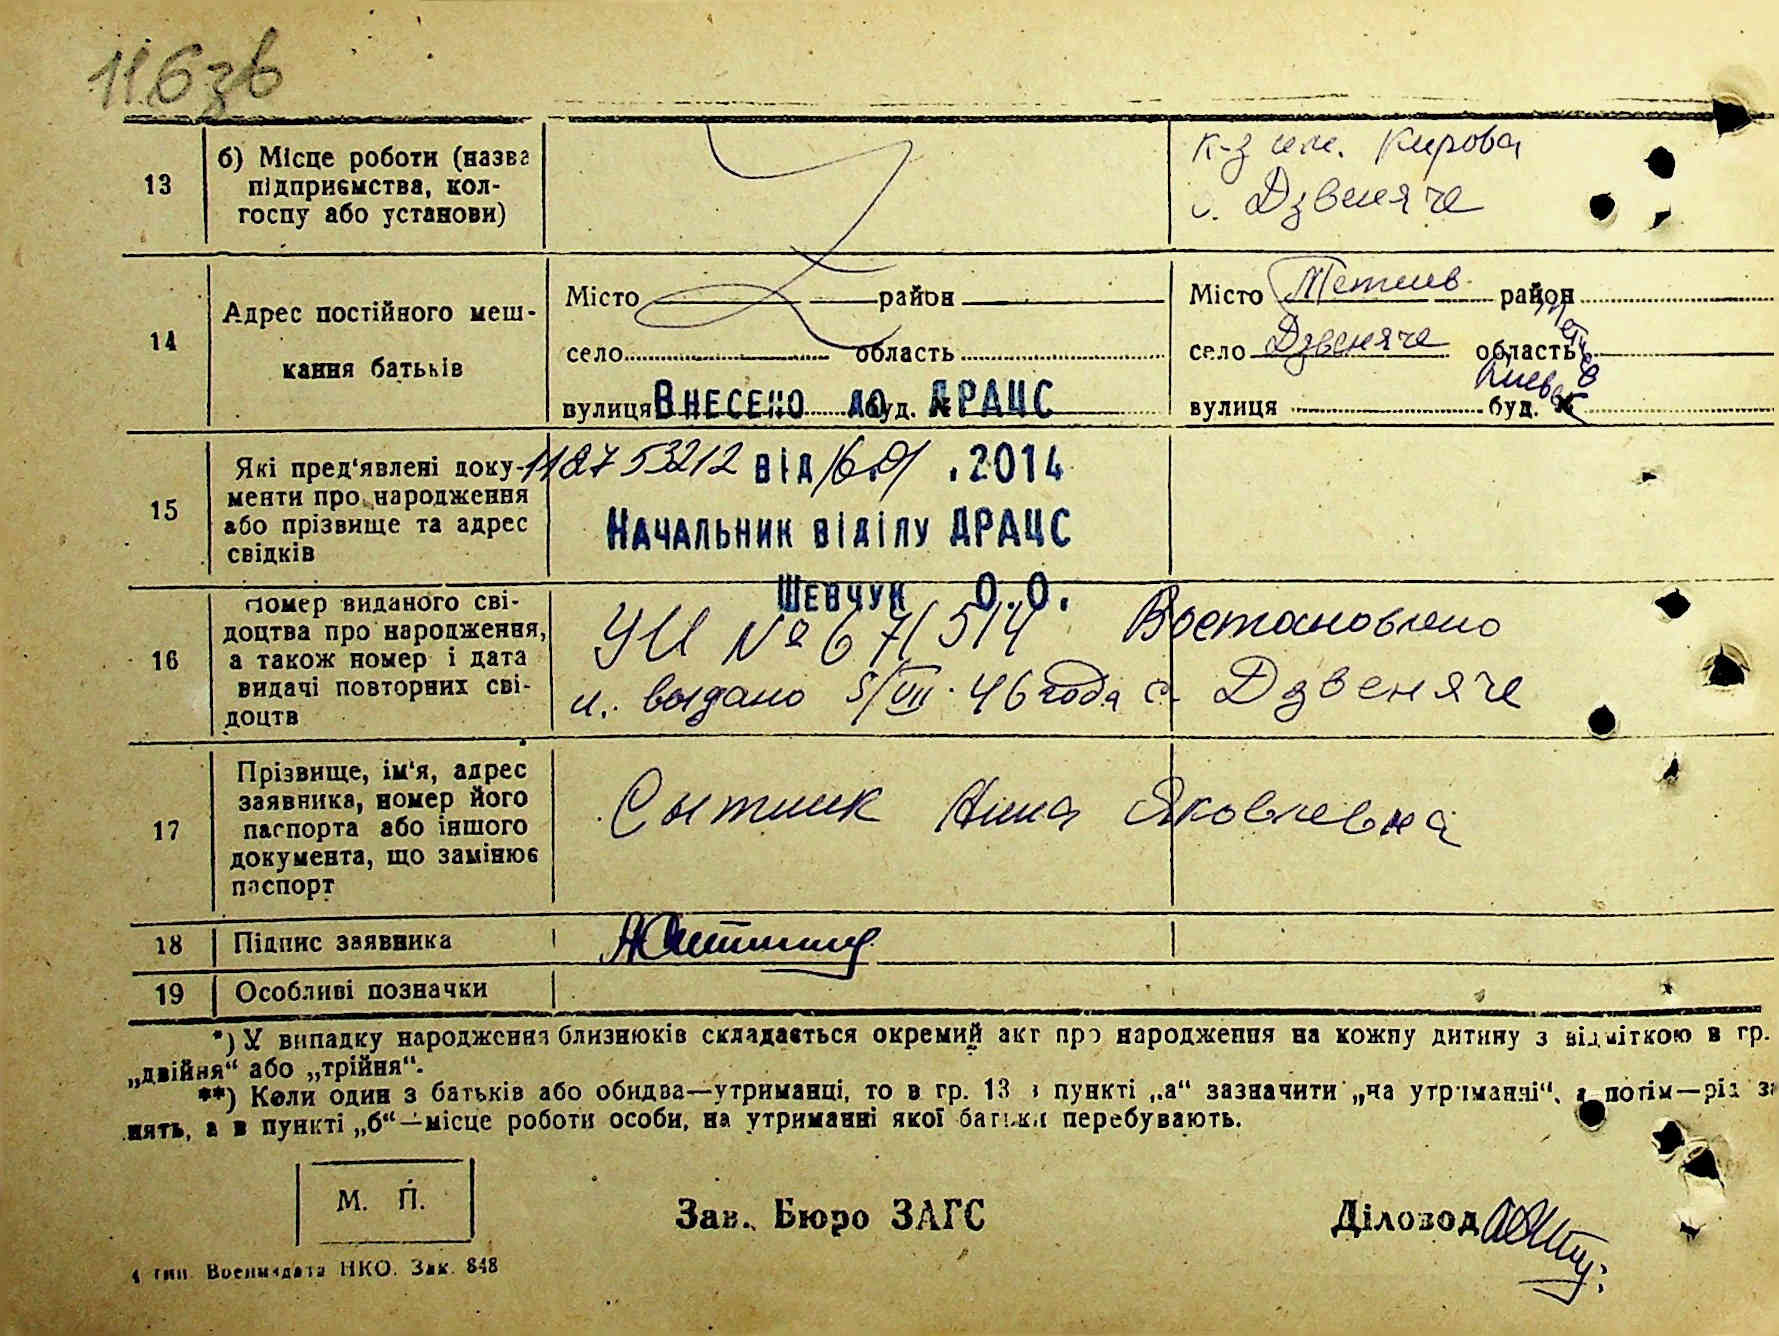 116зв
13
б) Місце роботи (назва
підприємства, кол-
госпу або установи)
к-з им. Кирова
с. Дзвеняче
14
Адрес постійного меш-
кання батьків
Місто район
село область
вулиця буд. №
Місто Тетиев район Тетиев
село Дзвеняче область Киевс
вулиця буд. №
Внесено до ДРАЦС
15
Які пред'явлені доку-
менти про народження
або прізвище та адрес
свідків
118753212 від 16.01.2014
Начальник відділу ДРАЦС
Шевчук О.О.
16
Номер виданого сві-
доцтва про народження,
а також номер і дата
видачі повторних сві-
доцтв
УИ № 671514 Востановлено
и. выдано 5/VII. 46 года с. Дзвеняче
17
Прізвище, ім'я, адрес
заявника, номер його
паспорта або іншого
документа, що замінює
паспорт
Сытник Нина Яковлевна
18
Підпис заявника
19
Особливі позначки
*) У випадку народження близнюків складається окремий акт про народження на кожну дитину з відміткою в гр.
„двійня“ або „трійня“.
**) Коли один з батьків або обидва—утриманці, то в гр. 13 в пункті „а“ зазначити „на утриманні“, а потім—рід за
нять, а в пункті „б“—місце роботи особи, на утриманні якої батьки перебувають.
М. П.
Зав. Бюро ЗАГС
Діловод
4 тип. Воениздата НКО. Зак. 848